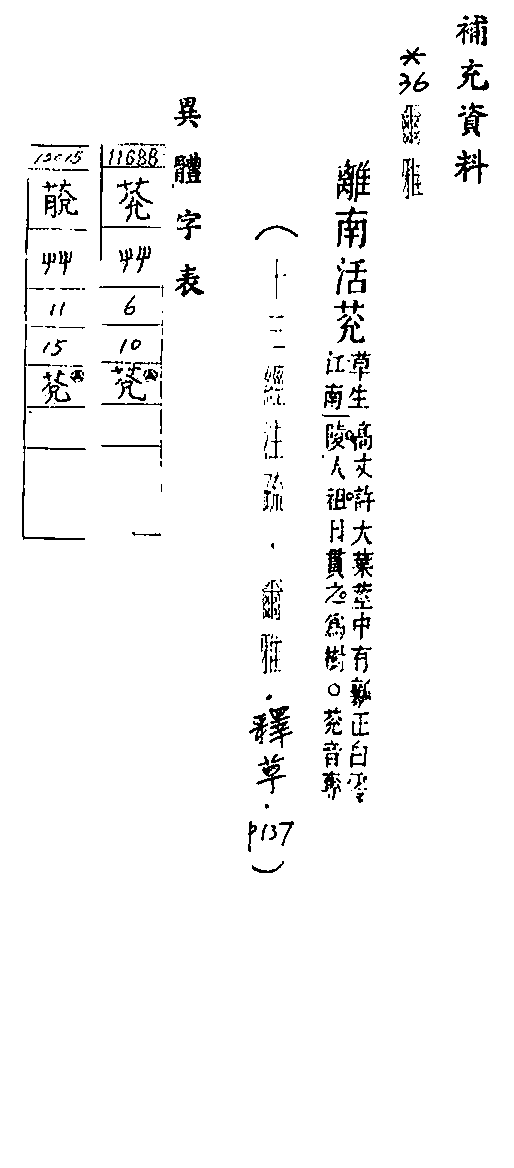 補充資料
*36 爾雅
離南活莌
草生江南高丈許大葉莖中有瓤正白零
陵人祖日貫之為樹。莌音奪
(十三經注疏.爾雅.釋草.p137)
異體字表
11688
莌
艸
6
10
莌
12015
艸
11
15
莌